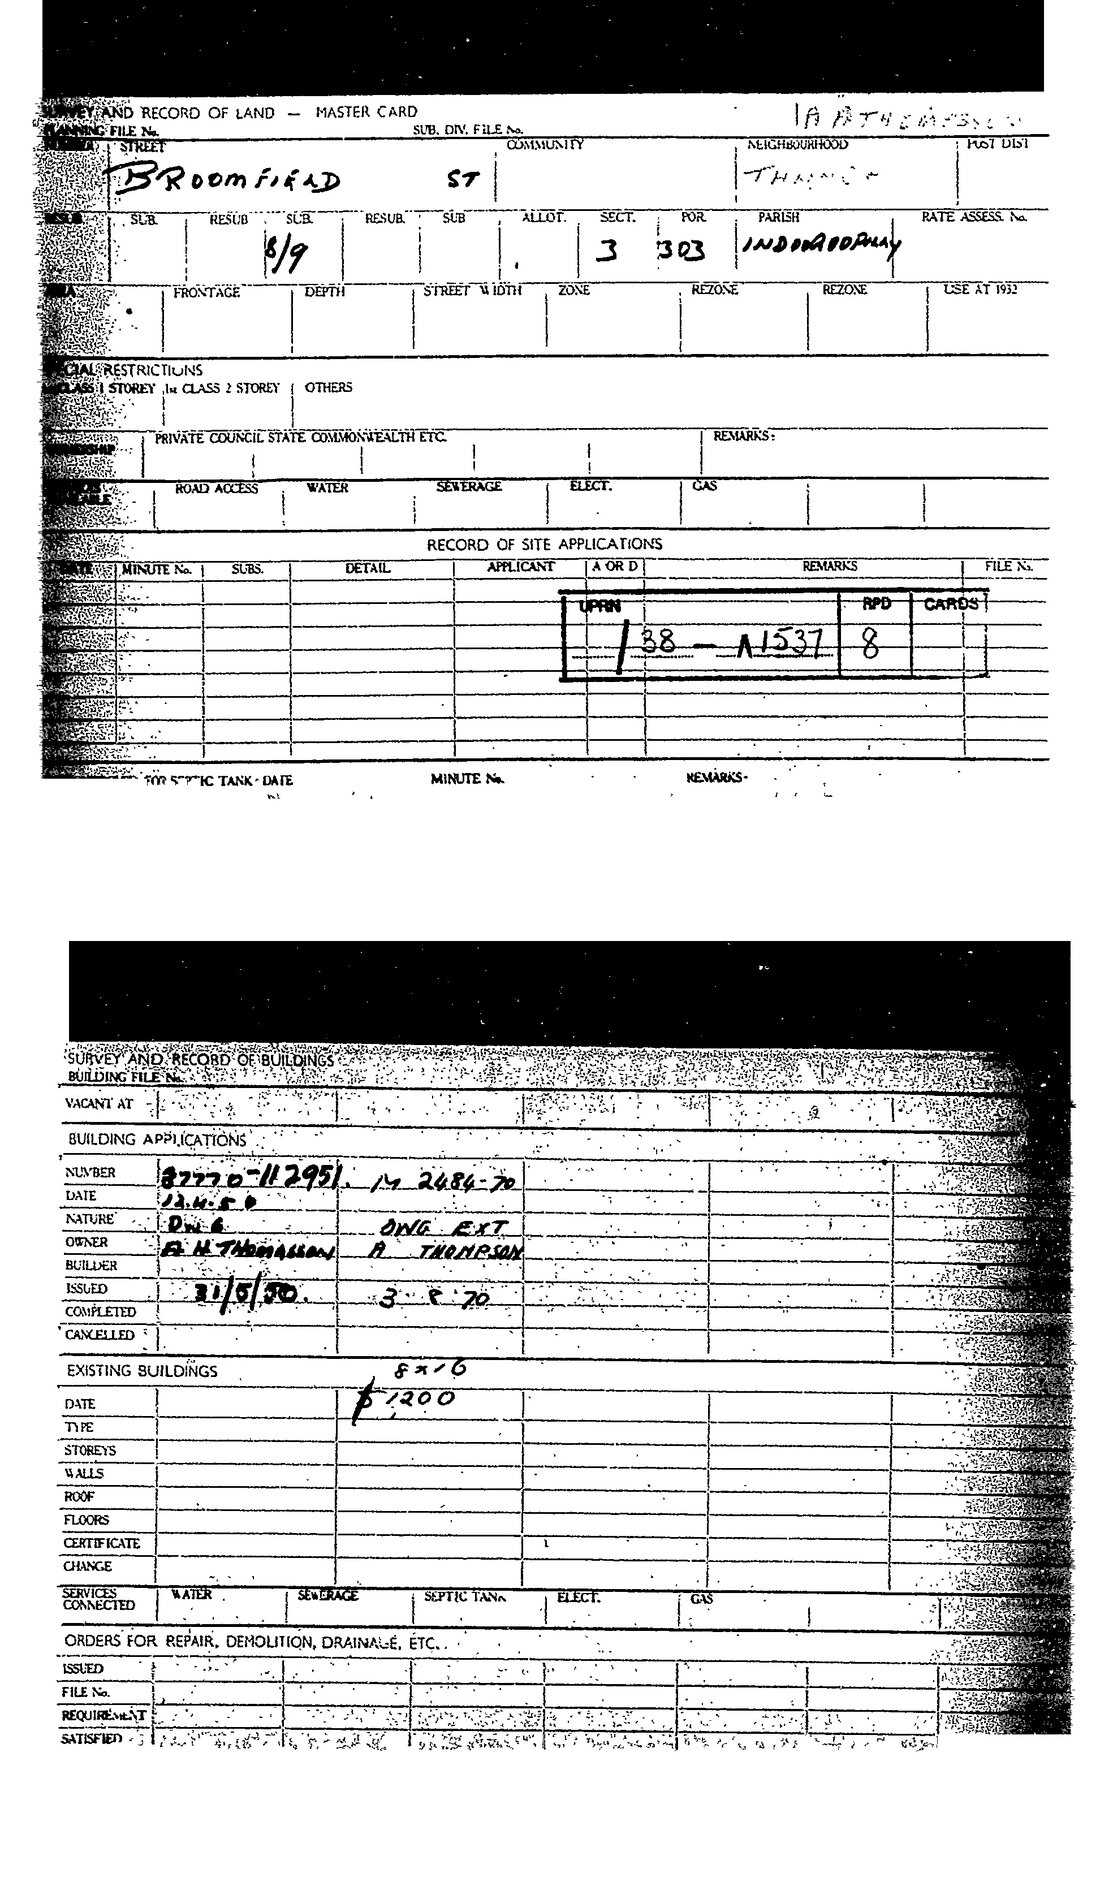 SURVEY AND RECORD OF LAND — MASTER CARD
PLANNING FILE No. SUB. DIV. FILE No.
STREET COMMUNITY NEIGHBOURHOOD POST DIST
BROOMFIELD ST
RESUB. SUB. RESUB SUB. RESUB. SUB ALLOT. SECT. POR. PARISH RATE ASSESS. No.
8/9 3 303 INDOOROOPILLY
AREA FRONTAGE DEPTH STREET WIDTH ZONE REZONE REZONE USE AT 1932
SPECIAL RESTRICTIONS
CLASS 1 STOREY 1st CLASS 2 STOREY OTHERS
OWNERSHIP PRIVATE COUNCIL STATE COMMONWEALTH ETC. REMARKS:
ROAD ACCESS WATER SEWERAGE ELECT. GAS
RECORD OF SITE APPLICATIONS
DATE MINUTE No. SUBS. DETAIL APPLICANT A OR D REMARKS FILE No.
UPRN RPD CARDS
/38 — 1537 8
FOR SEPTIC TANK - DATE MINUTE No. REMARKS-
SURVEY AND RECORD OF BUILDINGS
BUILDING FILE No.
VACANT AT
BUILDING APPLICATIONS
NUMBER 87770-112951. M 2484-70
DATE 12.4.50
NATURE DWG DWG EXT
OWNER A H THOMASSON A THOMPSON
BUILDER
ISSUED 31/5/50. 3 8 70
COMPLETED
CANCELLED
EXISTING BUILDINGS 8x16
DATE $1200
TYPE
STOREYS
WALLS
ROOF
FLOORS
CERTIFICATE
CHANGE
SERVICES CONNECTED WATER SEWERAGE SEPTIC TANK ELECT. GAS
ORDERS FOR REPAIR, DEMOLITION, DRAINAGE, ETC.
ISSUED
FILE No.
REQUIREMENT
SATISFIED